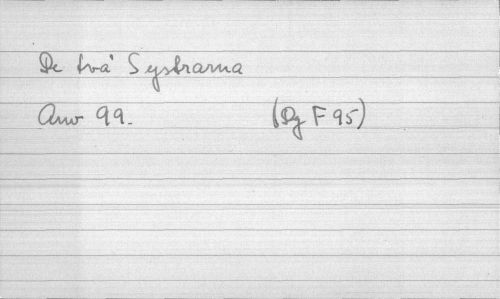 De två Systrarna
Arw 99. (Dg F 95)